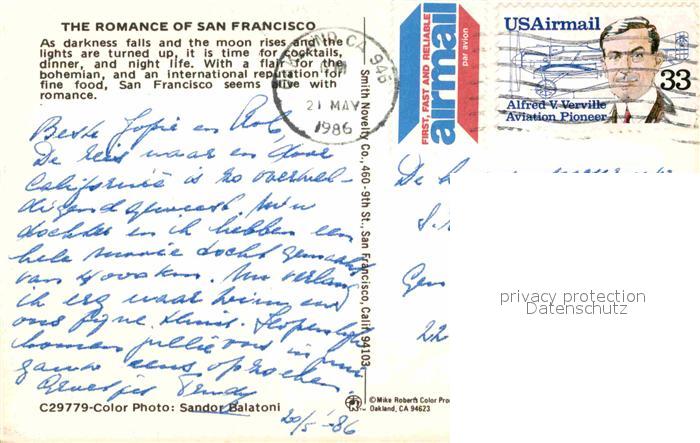 THE ROMANCE OF SAN FRANCISCO
As darkness falls and the moon rises and the
lights are turned up, it is time for cocktails,
dinner, and night life. With a flair for the
bohemian, and an international reputation for
fine food, San Francisco seems alive with
romance.
CA 946
21 MAY
1986
FIRST, FAST AND RELIABLE
airmail
par avion
USAirmail
33
Alfred V. Verville
Aviation Pioneer
Beste Jopie en Rob,
De reis naar en door
Californië is zo overwel-
digend geweest. Mijn
dochter en ik hebben een
hele mooie tocht gemaakt
van 4000 km. Nu verlang
ik erg naar huis en
ons fijne thuis. Hopenlijk
komen jullie ons in
gauw eens opzoeken.
Groetjes Trudy
20/5-86
Smith Novelty Co., 460-9th St., San Francisco, Calif. 94103
De h
Gen
22
privacy protection
Datenschutz
C29779-Color Photo: Sandor Balatoni
© Mike Roberts Color Pro
Oakland, CA 94623